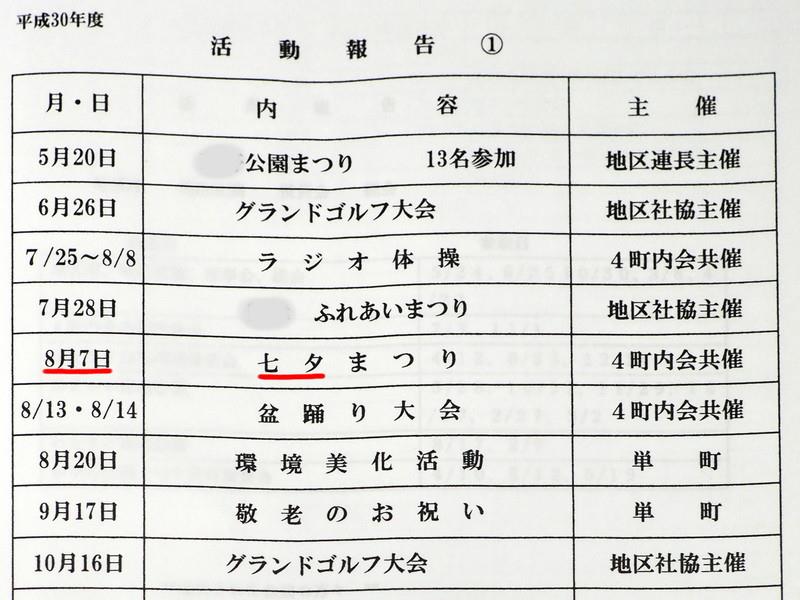 平成30年度
活動報告①
月・日 内容 主催
5月20日 公園まつり 13名参加 地区連長主催
6月26日 グランドゴルフ大会 地区社協主催
7/25～8/8 ラジオ体操 4町内会共催
7月28日 ふれあいまつり 地区社協主催
8月7日 七夕まつり 4町内会共催
8/13・8/14 盆踊り大会 4町内会共催
8月20日 環境美化活動 単町
9月17日 敬老のお祝い 単町
10月16日 グランドゴルフ大会 地区社協主催